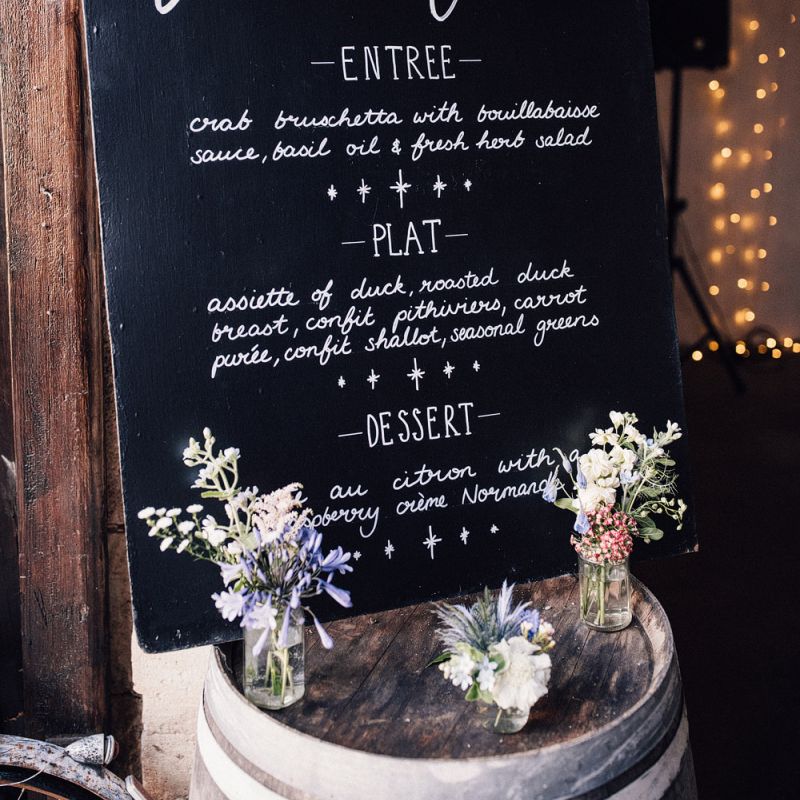 ENTREE
crab bruschetta with bouillabaisse
sauce, basil oil & fresh herb salad
PLAT
assiette of duck, roasted duck
breast, confit pithiviers, carrot
purée, confit shallot, seasonal greens
DESSERT
au citron with a
crème Normande